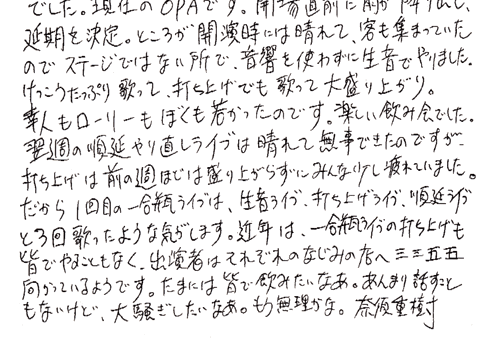 でした。現在のOPAです。開場直前に雨が降り出し、
延期を決定。ところが開演時には晴れて、客も集まっていた
のでステージではない所で、音響を使わずに生音でやりました。
けっこうたっぷり歌って、打ち上げでも歌って大盛り上がり。
隼人もローリーもぼくも若かったのです。楽しい飲み会でした。
翌週の順延やり直しライブは晴れて無事できたのですが、
打ち上げは前の週ほどは盛り上がらずにみんな少し疲れていました。
だから1回目の一合瓶ライブは、生音ライブ、打ち上げライブ、順延ライブ
と3回歌ったような気がします。近年は、一合瓶ライブの打ち上げも
皆でやることもなく、出演者はそれぞれのなじみの店へ三三五五
向かっているようです。たまには皆で飲みたいなあ。あんまり話すこと
もないけど、大騒ぎしたいなあ。もう無理かな。奈須重樹